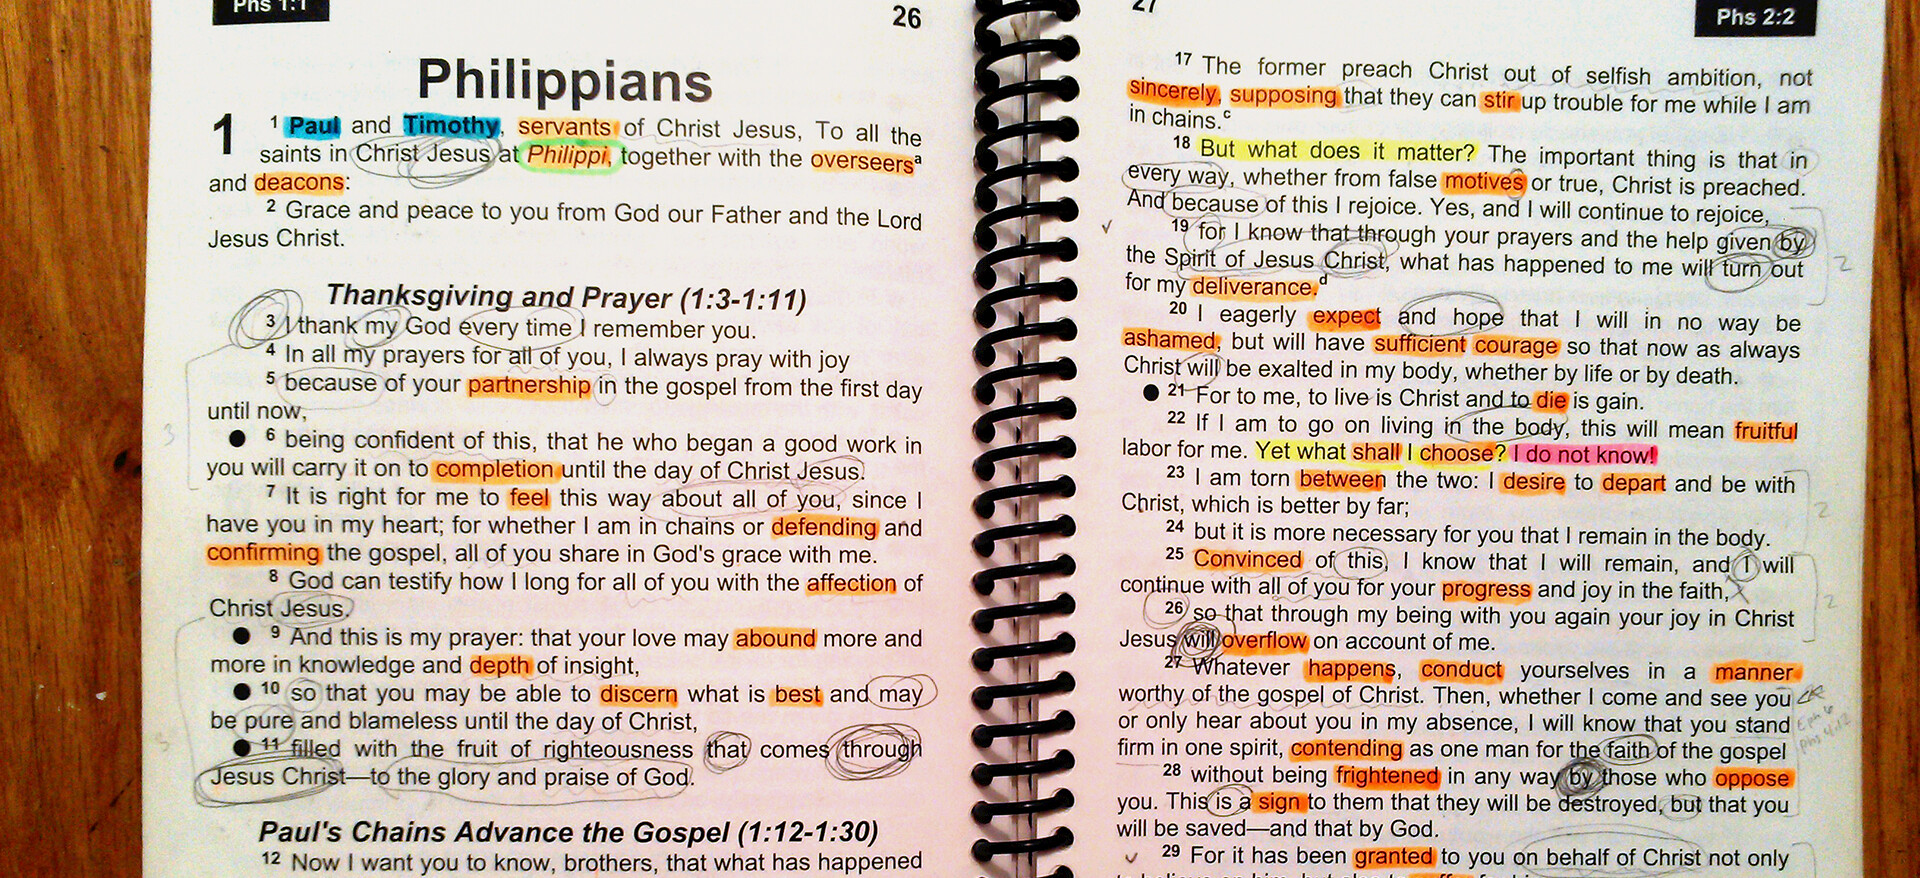 Phs 1:1
26
Philippians
1 1 Paul and Timothy, servants of Christ Jesus, To all the
saints in Christ Jesus at Philippi, together with the overseersa
and deacons:
2 Grace and peace to you from God our Father and the Lord
Jesus Christ.
Thanksgiving and Prayer (1:3-1:11)
3 I thank my God every time I remember you.
4 In all my prayers for all of you, I always pray with joy
5 because of your partnership in the gospel from the first day
until now,
● 6 being confident of this, that he who began a good work in
you will carry it on to completion until the day of Christ Jesus.
7 It is right for me to feel this way about all of you, since I
have you in my heart; for whether I am in chains or defending and
confirming the gospel, all of you share in God's grace with me.
8 God can testify how I long for all of you with the affection of
Christ Jesus.
● 9 And this is my prayer: that your love may abound more and
more in knowledge and depth of insight,
● 10 so that you may be able to discern what is best and may
be pure and blameless until the day of Christ,
● 11 filled with the fruit of righteousness that comes through
Jesus Christ—to the glory and praise of God.
3
3
Paul's Chains Advance the Gospel (1:12-1:30)
12 Now I want you to know, brothers, that what has happened
27
Phs 2:2
17 The former preach Christ out of selfish ambition, not
sincerely, supposing that they can stir up trouble for me while I am
in chains.c
18 But what does it matter? The important thing is that in
every way, whether from false motives or true, Christ is preached.
And because of this I rejoice. Yes, and I will continue to rejoice,
19 for I know that through your prayers and the help given by
the Spirit of Jesus Christ, what has happened to me will turn out
for my deliverance.d
2
20 I eagerly expect and hope that I will in no way be
ashamed, but will have sufficient courage so that now as always
Christ will be exalted in my body, whether by life or by death.
● 21 For to me, to live is Christ and to die is gain.
22 If I am to go on living in the body, this will mean fruitful
labor for me. Yet what shall I choose? I do not know!
23 I am torn between the two: I desire to depart and be with
Christ, which is better by far;
2
24 but it is more necessary for you that I remain in the body.
25 Convinced of this, I know that I will remain, and I will
continue with all of you for your progress and joy in the faith,
2
26 so that through my being with you again your joy in Christ
Jesus will overflow on account of me.
27 Whatever happens, conduct yourselves in a manner
worthy of the gospel of Christ. Then, whether I come and see you
or only hear about you in my absence, I will know that you stand
firm in one spirit, contending as one man for the faith of the gospel
28 without being frightened in any way by those who oppose
you. This is a sign to them that they will be destroyed, but that you
will be saved—and that by God.
29 For it has been granted to you on behalf of Christ not only